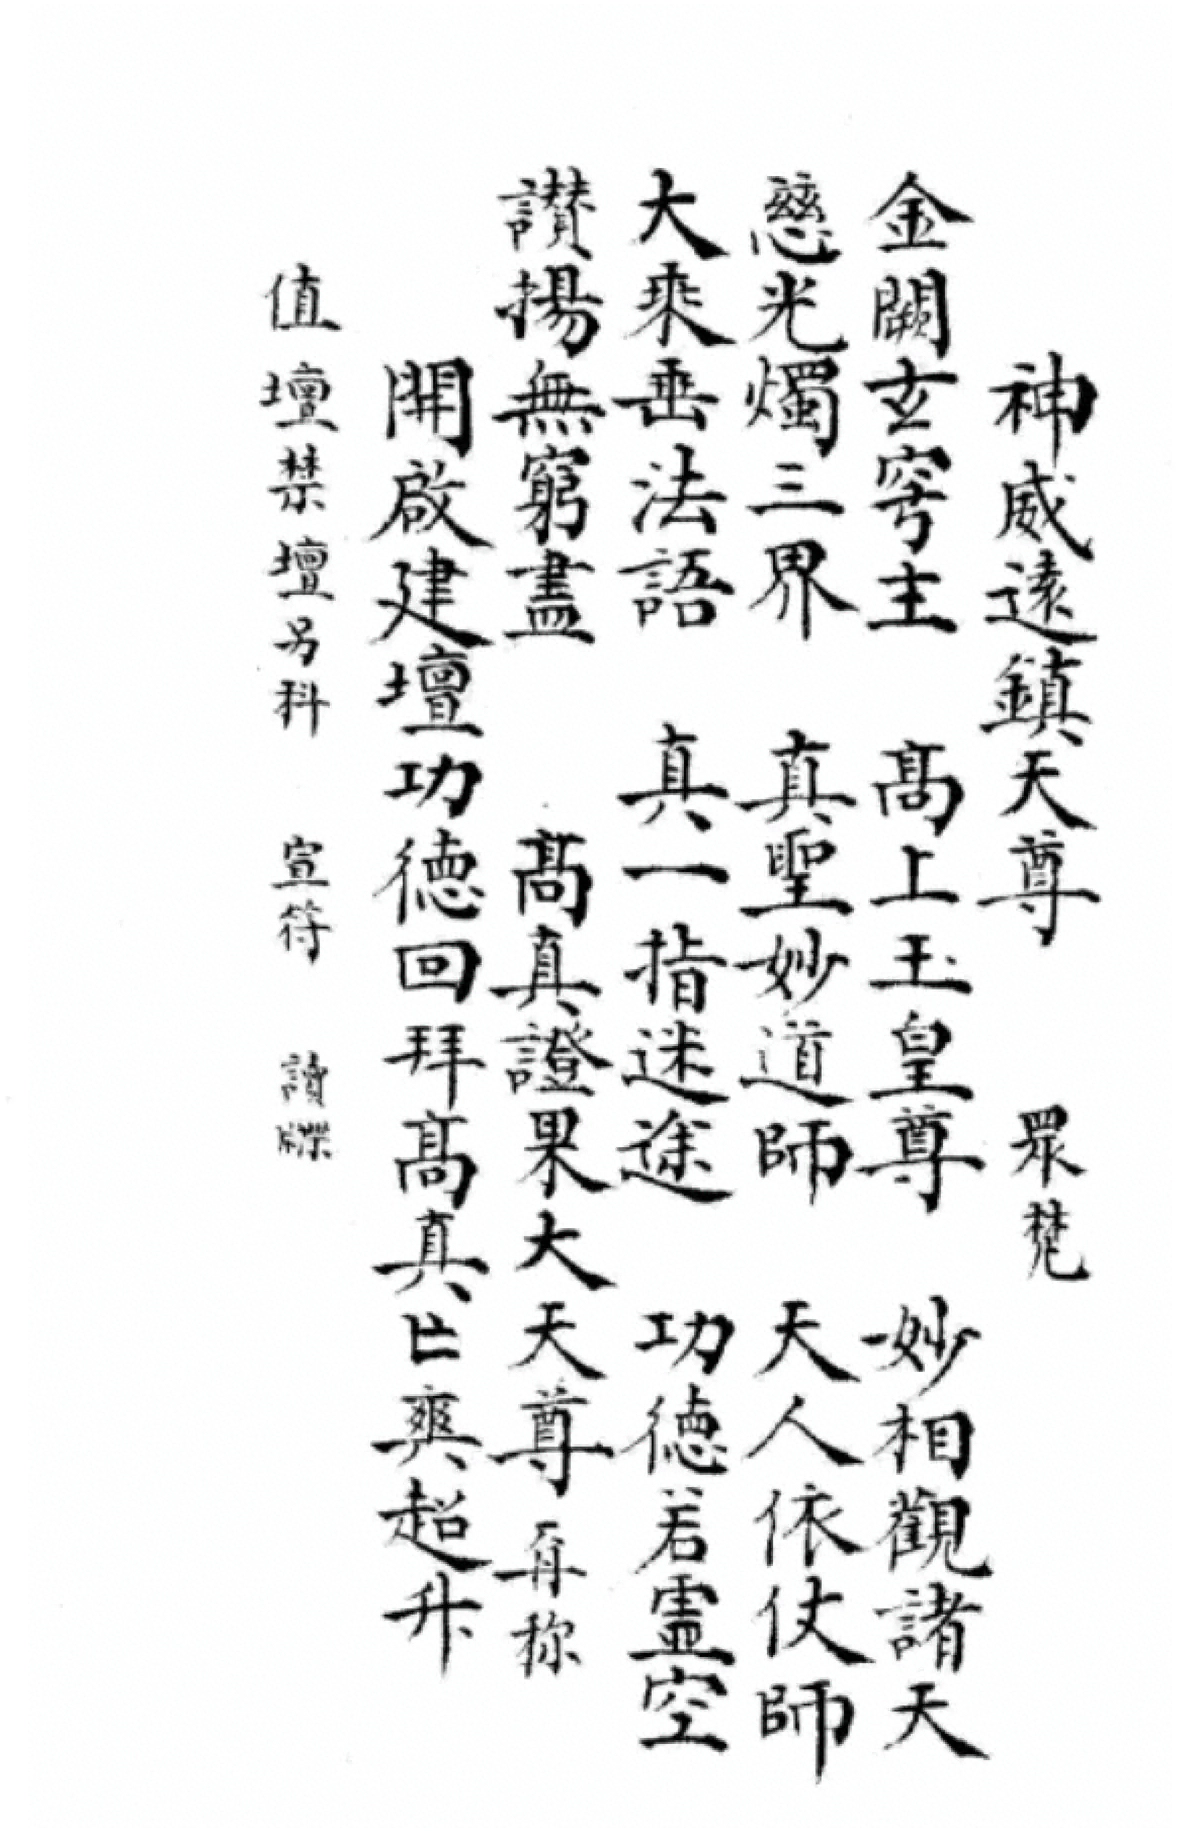 神威遠鎮天尊　眾梵
金闕玄穹主　高上玉皇尊　妙相觀諸天
慈光燭三界　真聖妙道師　天人依仗師
大乘垂法語　真一指迷途　功德若虛空
讃揚無窮盡　高真證果大天尊　再称
開啟建壇功德回拜高真亡爽超升
值壇禁壇另科　宣符　讀牒